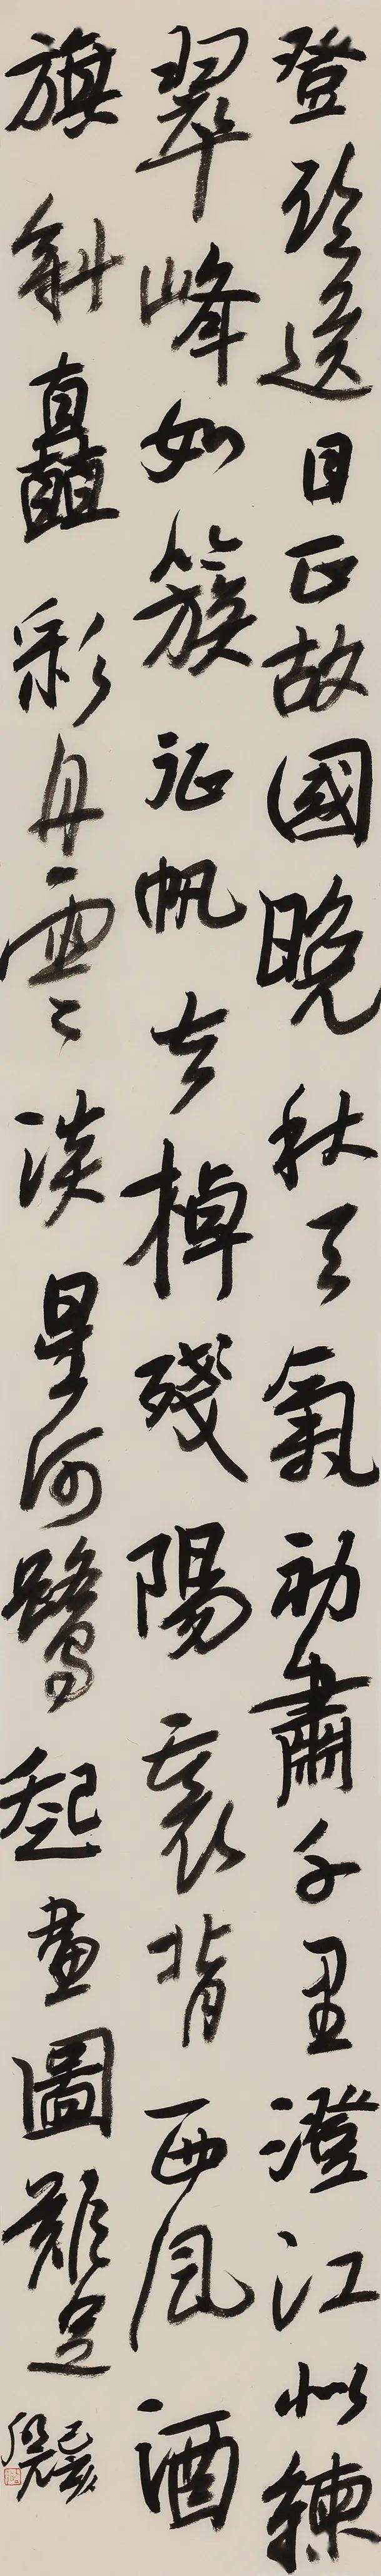 登臨送目正故國晚秋天氣初肅千里澄江似練
翠峰如簇征帆去棹殘陽裏背西風酒
旗斜矗彩舟雲淡星河鷺起畫圖難足
己亥